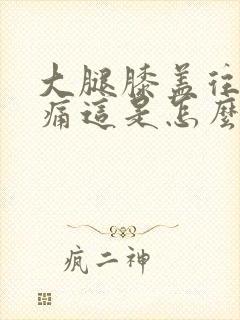 大腿膝盖往
痛這是怎麼
疯二神